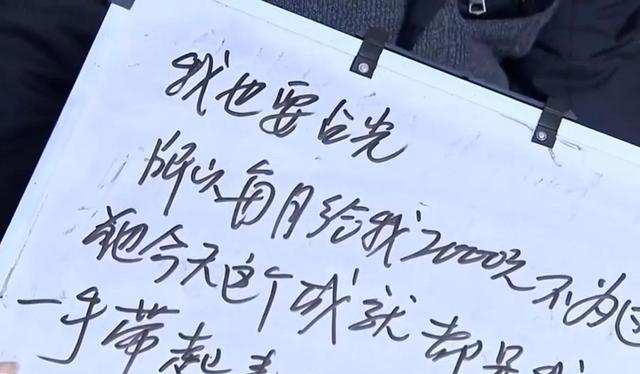 我也要占光
所以每月给我2000元不为过
她今天这个成就都是我
一手带起来